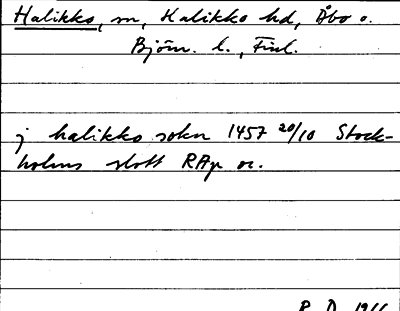 Halikko, sn, Halikko hd, Åbo o.
Björn. l., Finl.
j halikko sokn 1457 20/10 Stock-
holms slott RAp or.
R. D. 1966